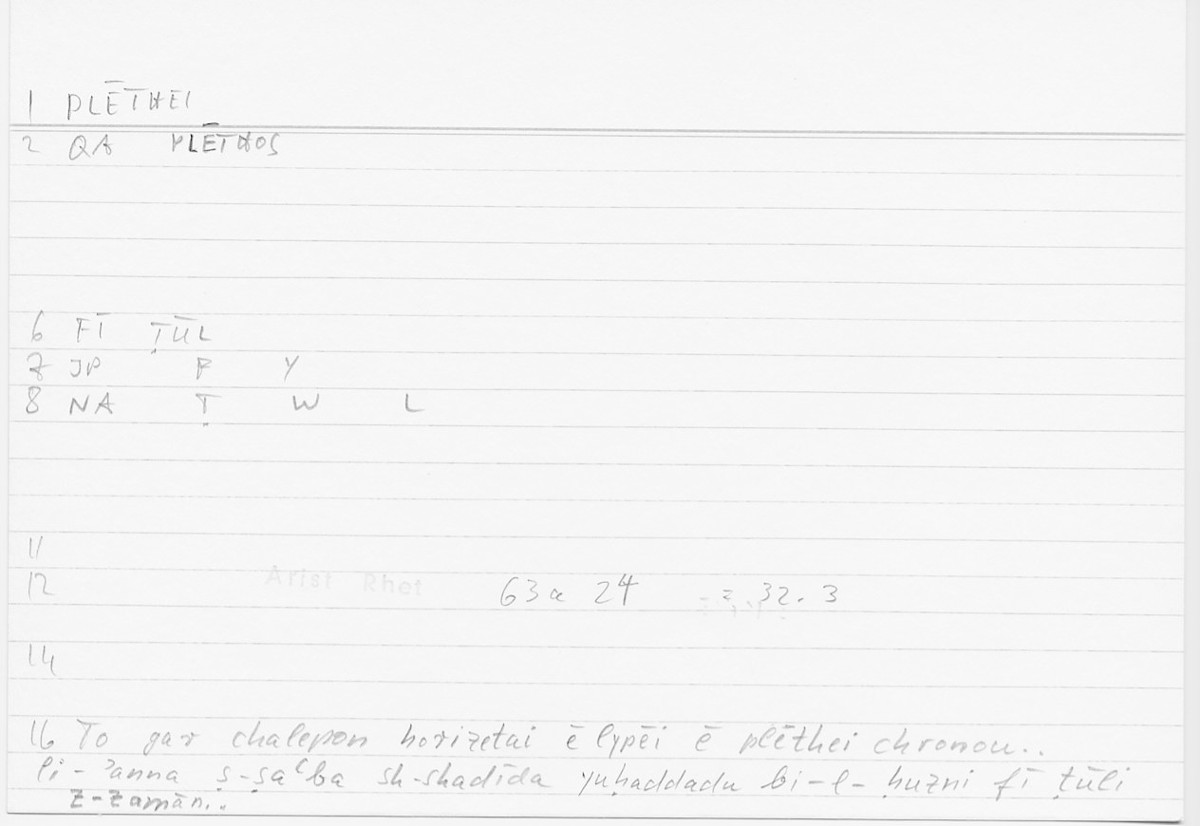 1 PLĒTHEI
2 QA PLĒTHOS
6 FĪ ṬŪL
7 JP F Y
8 NA Ṭ W L
11
12 Arist Rhet 63a 24 = 32.3
14
16 To gar chalepon horizetai ē lypēi ē plēthei chronou..
li-ʾanna ṣ-ṣaʿba sh-shadīda yuḥaddadu bi-l-ḥuzni fī ṭūli
z-zamān..